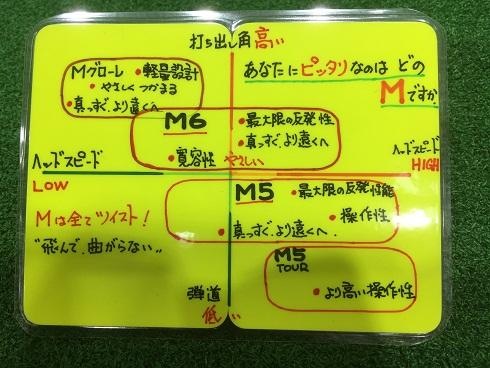 打ち出し角 高い
あなたにピッタリなのは どの
Mですか
Mグローレ ・軽量設計
・やさしくつかまる
・真っすぐ、より遠くへ
M6 ・最大限の反発性
・真っすぐ、より遠くへ
・寛容性 やさしい
ヘッドスピード
LOW
ヘッドスピード
HIGH
M5 ・最大限の反発性能
・操作性
・真っすぐ、より遠くへ
Mは全てツイスト!
"飛んで、曲がらない"
M5
TOUR
・より高い操作性
弾道
低い